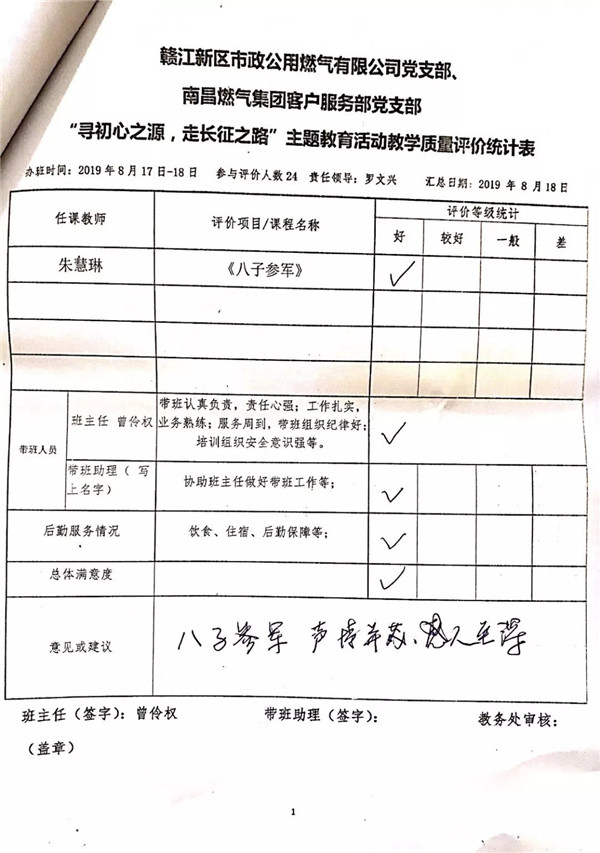 赣江新区市政公用燃气有限公司党支部、
南昌燃气集团客户服务部党支部
“寻初心之源，走长征之路”主题教育活动教学质量评价统计表
办班时间：2019年8月17日-18日 参与评价人数24 责任领导：罗文兴 汇总日期：2019年8月18日
任课教师 评价项目/课程名称 评价等级统计
好 较好 一般 差
朱慧琳 《八子参军》 ✓
带班人员 班主任 曾伶权 带班认真负责，责任心强；工作扎实，
业务熟练；服务周到，带班组织纪律好；
培训组织安全意识强等。 ✓
带班助理（ 写
上名字） 协助班主任做好带班工作等； ✓
后勤服务情况 饮食、住宿、后勤保障等； ✓
总体满意度 ✓
意见或建议 八子参军 声情并茂、感人至深
班主任（签字）：曾伶权 带班助理（签字）： 教务处审核：
（盖章）
1